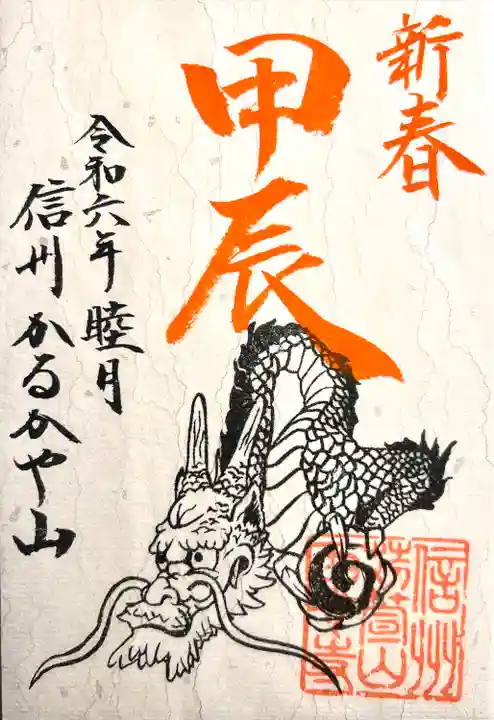 新春
甲辰
令和六年睦月
信州かるかや山
信州
苅萱山
西光寺